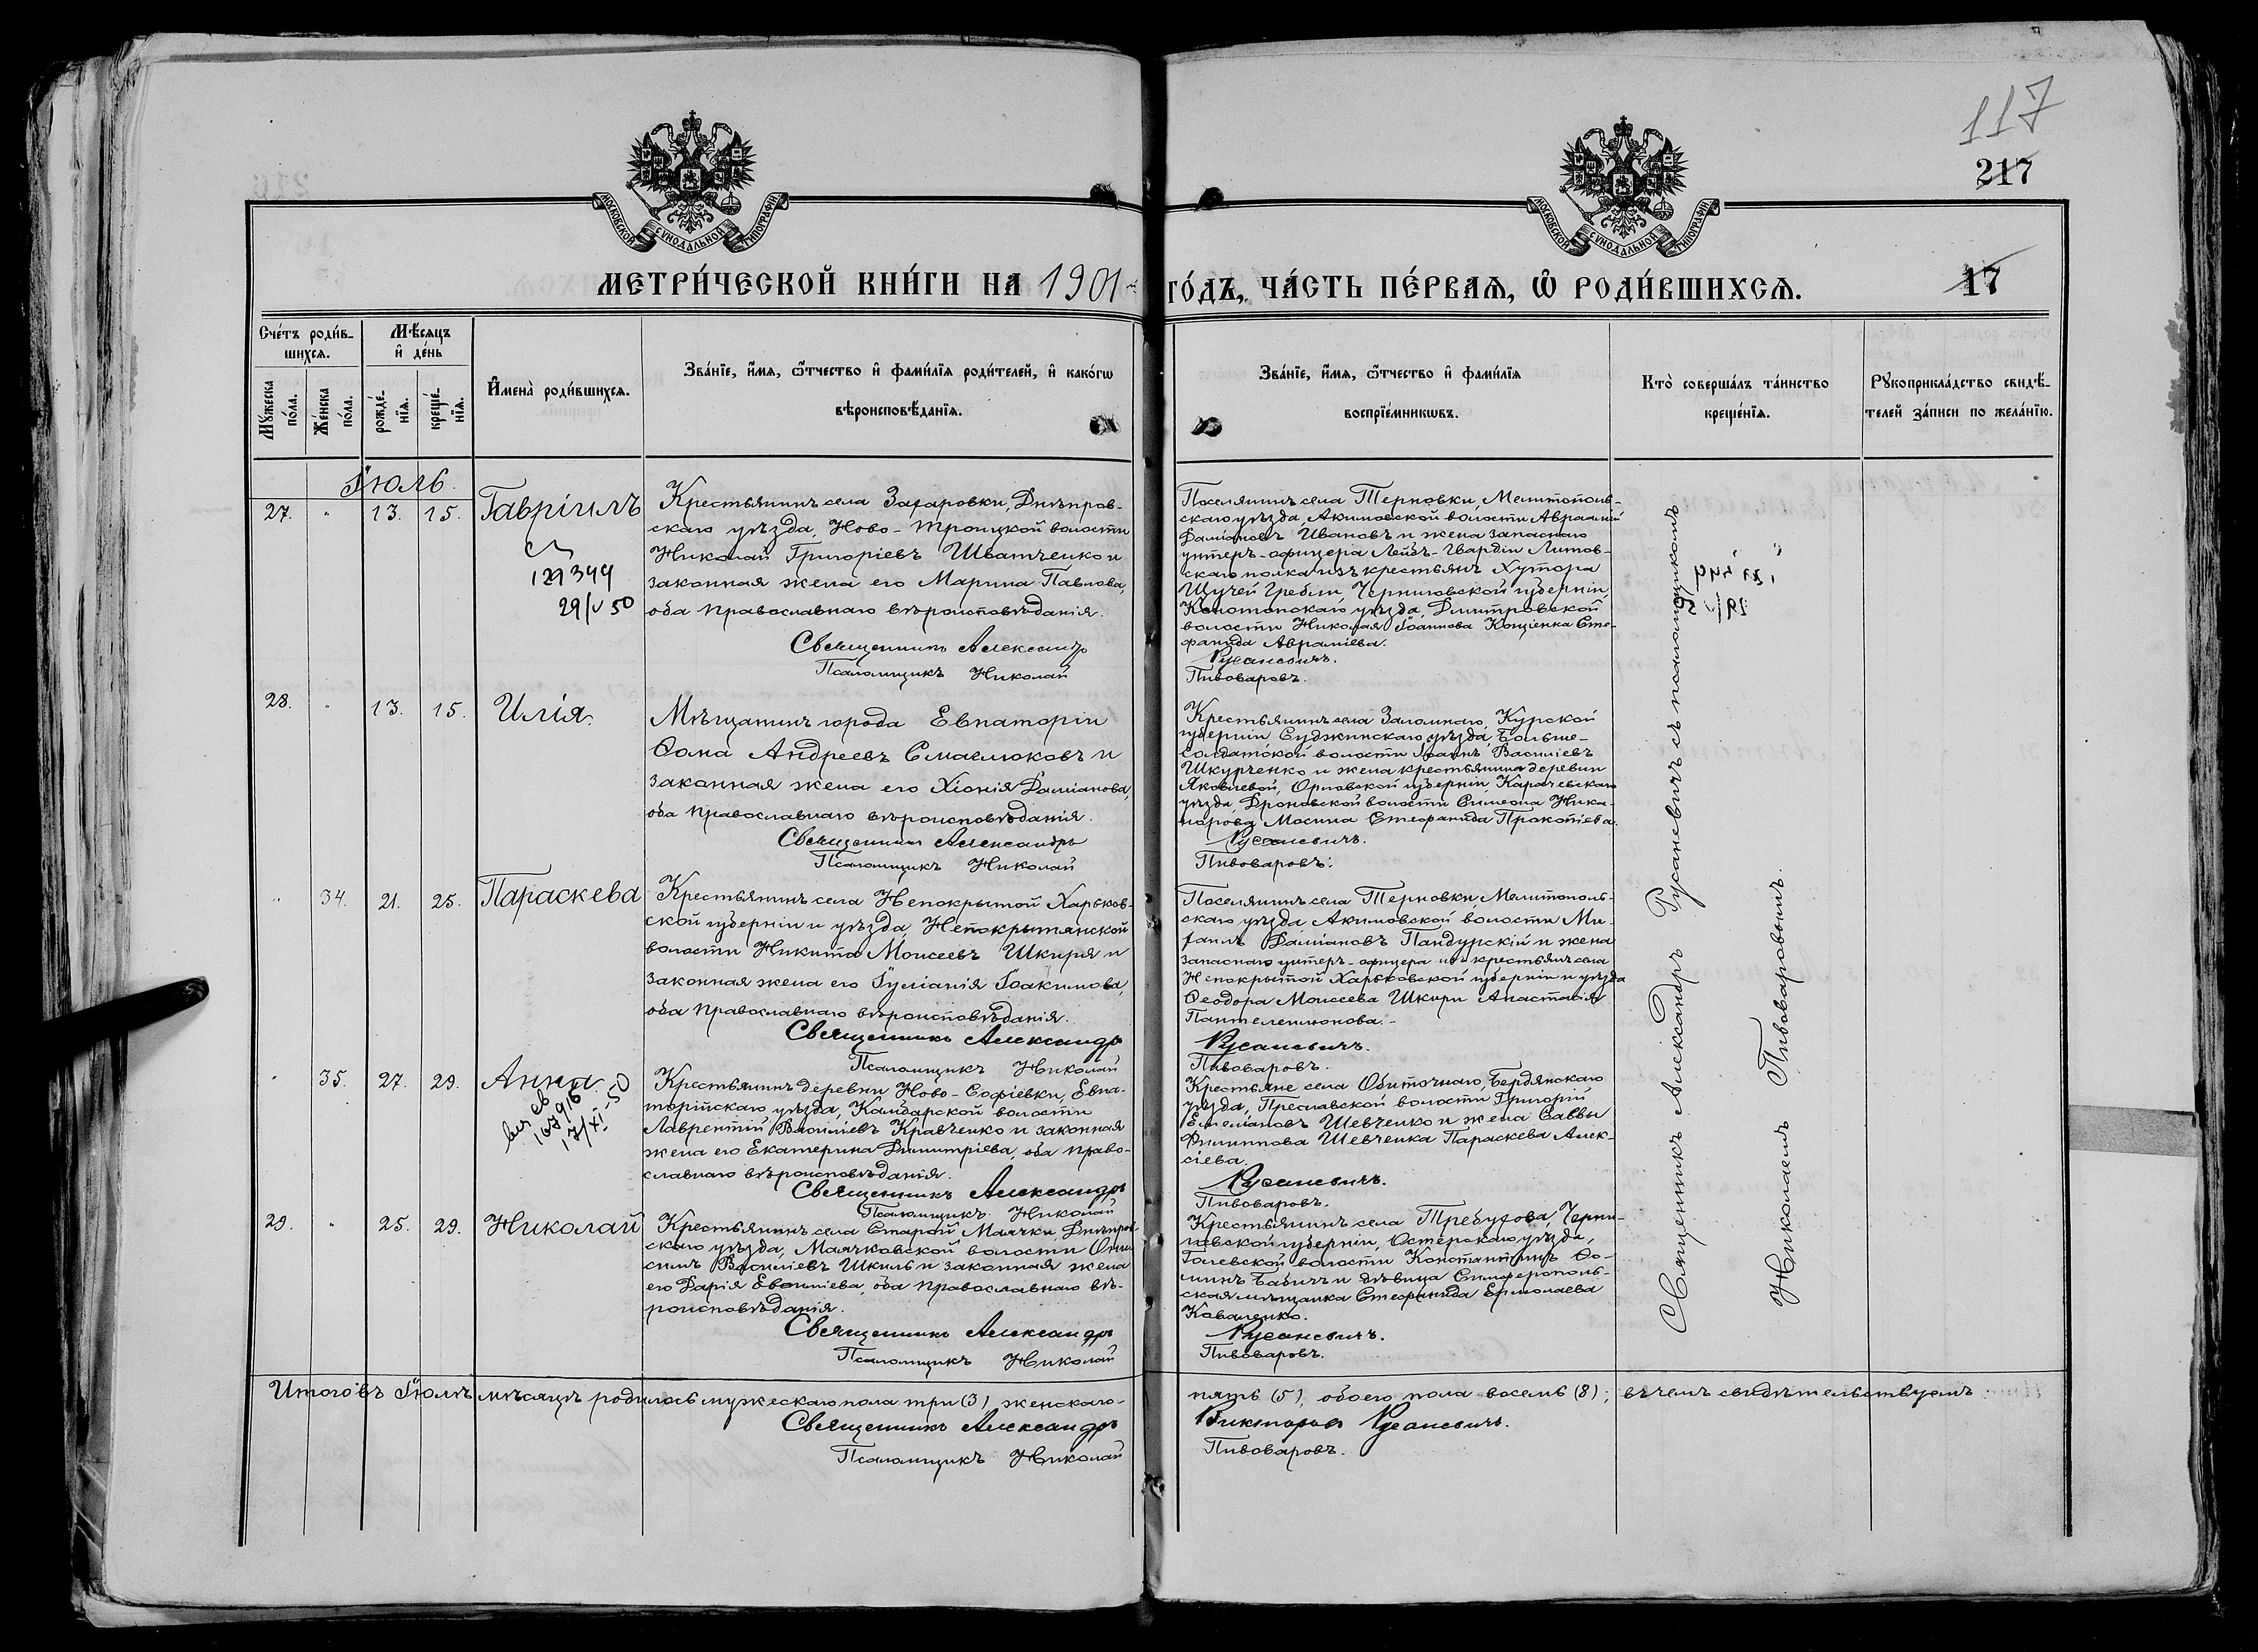 117
217
МОСКОВСКОЙ СѴНОДАЛЬНОЙ ТИПОГРАФІИ
МОСКОВСКОЙ СѴНОДАЛЬНОЙ ТИПОГРАФІИ
МЕТРИ́ЧЕСКОЙ КНИ́ГИ НА 1901 ГО́ДЪ, ЧА́СТЬ ПЕ́РВАѦ, Ѽ РОДИ́ВШИХСѦ.
17
Сче́тъ роди́в-
шихсѧ.
Мѣ́сѧцъ
и҆ де́нь
Мꙋ́жеска
по́ла.
Же́нска
по́ла.
рожде́-
нїѧ.
креще́-
нїѧ.
И҆мена̀ роди́вшихсѧ.
Зва́нїе, и҆́мѧ, ѻ҆́тчество и҆ фами́лїѧ роди́телей, и҆ како́гѡ
вѣроисповѣ́данїѧ.
Зва́нїе, и҆́мѧ, ѻ҆́тчество и҆ фами́лїѧ
воспрїе́мникѡвъ.
Кто̀ соверша́лъ та́инство
креще́нїѧ.
Рꙋкоприкла́дство свидѣ́-
телей за́писи по жела́нїю.
Іюль.
27. " 13. 15. Гавріилъ
121344
29/V 50
Крестьянинъ села Захаровки, Днѣпров-
скаго уѣзда, Ново-Троицкой волости
Николай Григоріевъ Шватченко и
законная жена его Марина Павлова,
оба православнаго вѣроисповѣданія.
Священникъ Александръ
Псаломщикъ Николай
Поселянинъ села Терновки, Мелитополь-
скаго уѣзда, Акимовской волости Авраамій
Даміановъ Ивановъ и жена запаснаго
унтеръ-офицера Лейбъ-Гвардіи Литов-
скаго полка изъ крестьянъ Хутора
Щучей Гребли, Черниговской губерніи,
Конотопскаго уѣзда, Дмитровской
волости Николая Іоаннова Коціенка Сте-
фанида Авраміева.
Русаневичъ.
Пивоваровъ.
28. " 13. 15. Илія.
Мѣщанинъ города Евпаторіи
Ѳома Андреевъ Смаглюковъ и
законная жена его Хіонія Даміанова,
оба православнаго вѣроисповѣданія.
Священникъ Александръ
Псаломщикъ Николай
Крестьянинъ села Заломнаго, Курской
губерніи Суджинскаго уѣзда, Больше-
Солдатской волости Іоаннъ Василіевъ
Шкурченко и жена крестьянина деревни
Яковлевой, Орловской губерніи, Карачевскаго
уѣзда Дроновской волости Симеона Ника-
норова Мосина Стефанида Прокопіева.
Русаневичъ.
Пивоваровъ.
" 34. 21. 25. Параскева
Крестьянинъ села Непокрытой Харьков-
ской губерніи и уѣзда, Непокрытянской
волости Никита Моисеевъ Шкиря и
законная жена его Іуліанія Іоакимова,
оба православнаго вѣроисповѣданія.
Священникъ Александръ
Псаломщикъ Николай
Поселянинъ села Терновки, Мелитополь-
скаго уѣзда Акимовской волости Ми-
хаилъ Даміановъ Пандурскій и жена
запаснаго унтеръ-офицера изъ крестьянъ села
Непокрытой Харьковской губерніи и уѣзда
Ѳеодора Моисеева Шкири Анастасія
Пантелеимонова.-
Русаневичъ.
Пивоваровъ.
" 35. 27. 29. Анна.
167916
17/XI-50
Крестьянинъ деревни Ново-Софіевки, Евпа-
торійскаго уѣзда, Камбарской волости
Лаврентій Василіевъ Кравченко и законная
жена его Екатерина Димитріева, оба право-
славнаго вѣроисповѣданія.
Священникъ Александръ
Псаломщикъ Николай
Крестьяне села Обиточнаго, Бердянскаго
уѣзда, Преславской волости Григорій
Емеліановъ Шевченко и жена Саввы
Филиппова Шевченка Параскева Алек-
сіева.
Русаневичъ.
Пивоваровъ.
29. " 25. 29. Николай
Крестьянинъ села Старой Маячки, Днѣпров-
скаго уѣзда, Маячковской волости Они-
симъ Василіевъ Шкиль и законная жена
его Дарія Евѳиміева, оба православнаго вѣ-
роисповѣданія.
Священникъ Александръ
Псаломщикъ Николай
Крестьянинъ села Требухова, Черни-
говской губерніи, Остерскаго уѣзда,
Гоголевской волости Константинъ Ѳо-
минъ Бабичъ и дѣвица Симферополь-
ская мѣщанка Стефанида Ермолаева
Коваленко.
Русаневичъ.
Пивоваровъ.
Священникъ Александръ Русаневичъ съ псаломщикомъ
Николаемъ Пивоваровымъ.
Итого въ Іюлѣ мѣсяцѣ родилось мужескаго пола три (3), женскаго-
пять (5), обоего пола восемь (8); въ чемъ свидѣтельствуемъ:
Священникъ Александръ Викторовъ Русаневичъ.
Псаломщикъ Николай Пивоваровъ.